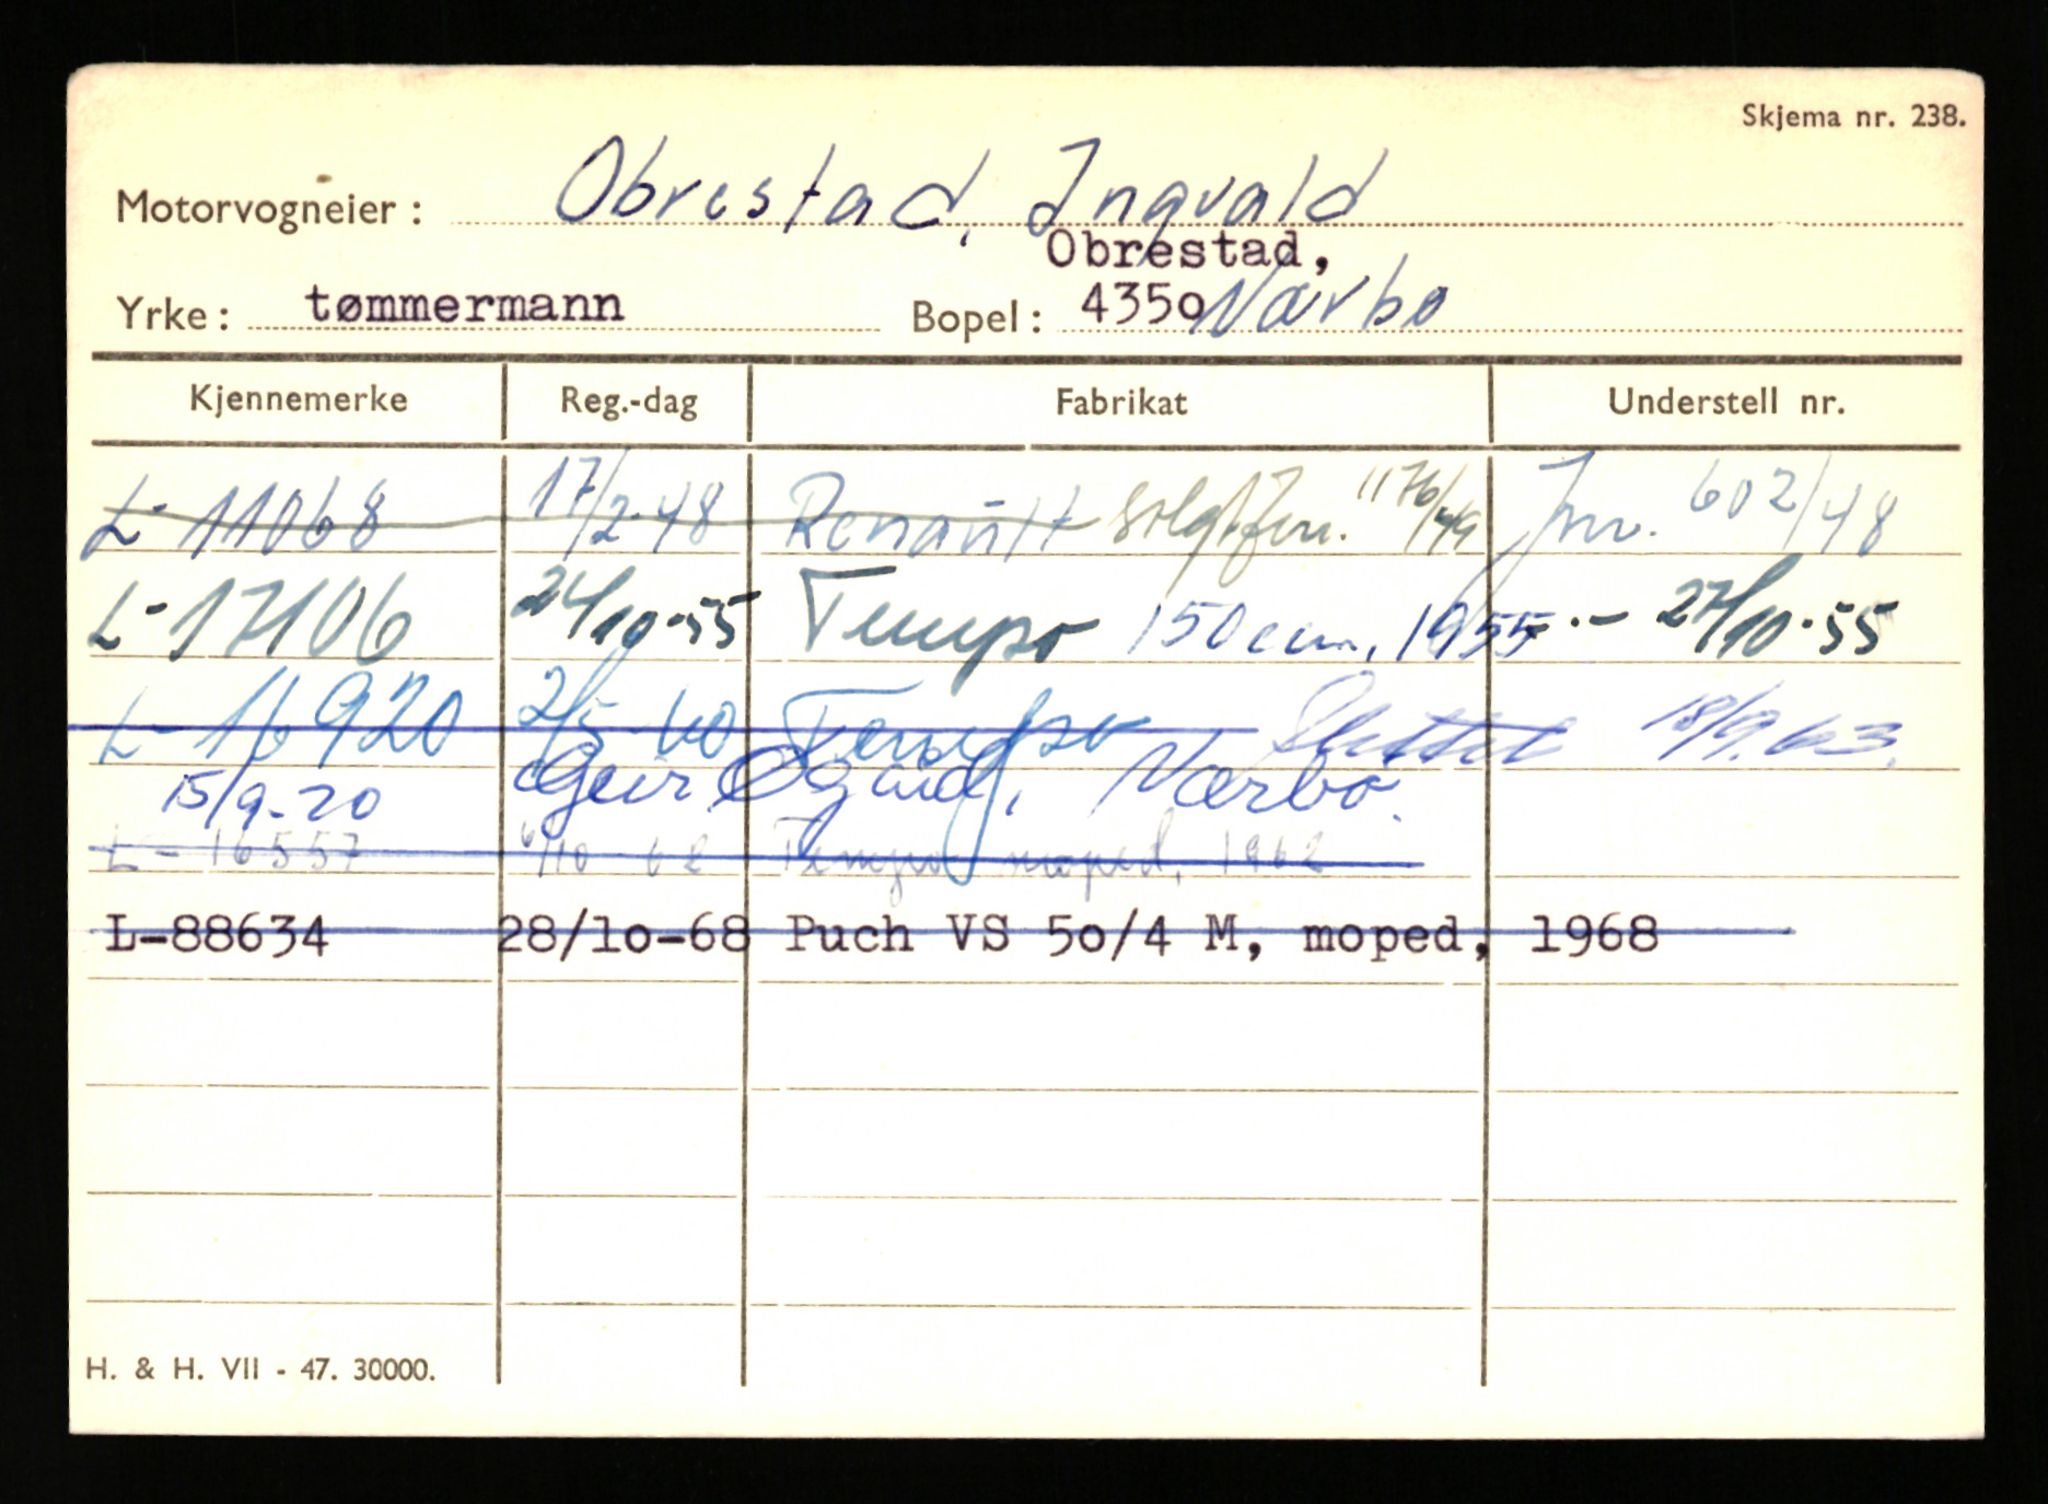 Skjema nr. 238.
Motorvogneier: Obrestad, Ingvald
Obrestad,
Yrke: tømmermann Bopel: 4350 Nærbø
Kjennemerke Reg.-dag Fabrikat Understell nr.
L-11068 17/2-48 Renault solgt Jnr. 602/48
L-17106 24/10-55 Tempo 150 ccm, 1955.- 27/10-55
L-16920 2/5-60 Tempo Slettet 18/9.63.
15/9-70 Geir Nærbø.
L-16557 6/10 62 Tempo moped, 1962
L-88634 28/10-68 Puch VS 50/4 M, moped, 1968
H. & H. VII - 47. 30000.